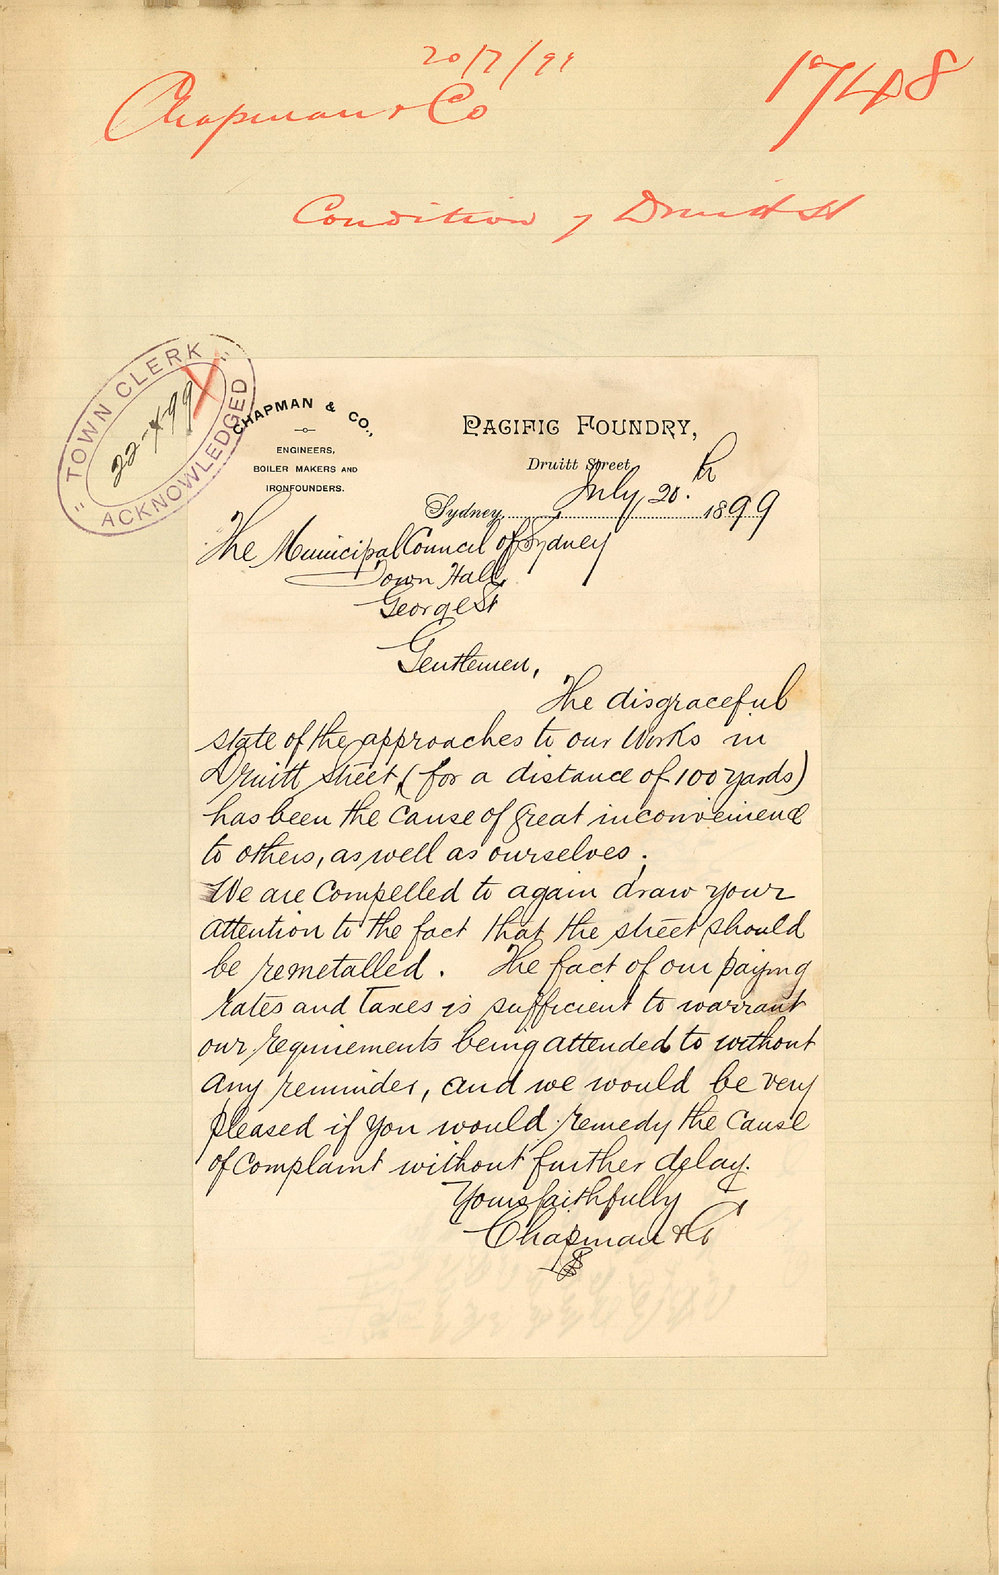 20/7/99
Chapman & Co
1748
Condition of Druitt St
"TOWN CLERK"
22-7-99
ACKNOWLEDGED
CHAPMAN & CO.,
ENGINEERS,
BOILER MAKERS AND
IRONFOUNDERS.
PACIFIC FOUNDRY,
Druitt Street,
Sydney, July 20.th 1899
The Municipal Council of Sydney
Town Hall
George St
Gentlemen,
The disgraceful
state of the approaches to our Works in
Druitt street, (for a distance of 100 yards)
has been the cause of great inconvenience
to others, as well as ourselves.
We are compelled to again draw your
attention to the fact that the street should
be remetalled. The fact of our paying
rates and taxes is sufficient to warrant
our requirements being attended to without
any reminder, and we would be very
pleased if you would remedy the cause
of complaint without further delay.
Yours faithfully
Chapman & Co